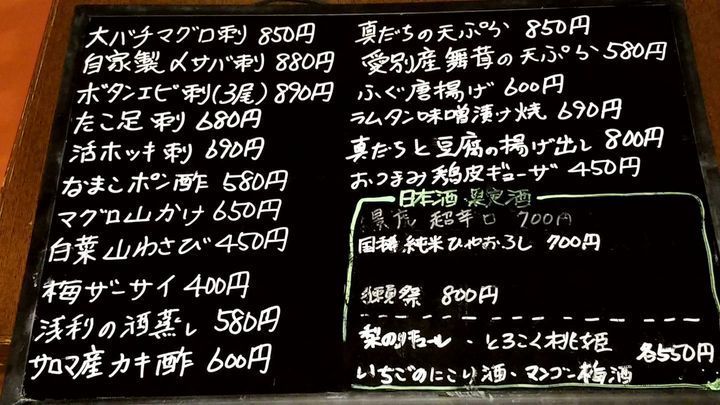 大バチマグロ刺 850円
自家製〆サバ刺 880円
ボタンエビ刺(3尾)890円
たこ足刺 680円
活ホッキ刺 690円
なまこポン酢 580円
マグロ山かけ 650円
白菜山わさび 450円
梅ザーサイ 400円
浅利の酒蒸し 580円
サロマ産カキ酢 600円
真だちの天ぷら 850円
愛別産舞茸の天ぷら 580円
ふぐ唐揚げ 600円
ラムタン味噌漬け焼 690円
真だちと豆腐の揚げ出し 800円
おつまみ鶏皮ギョーザ 450円
日本酒 限定酒
超辛口 700円
国稀 純米ひやおろし 700円
獺祭 800円
梨のリキュール・とろこく桃姫 各550円
いちごのにごり酒・マンゴー梅酒